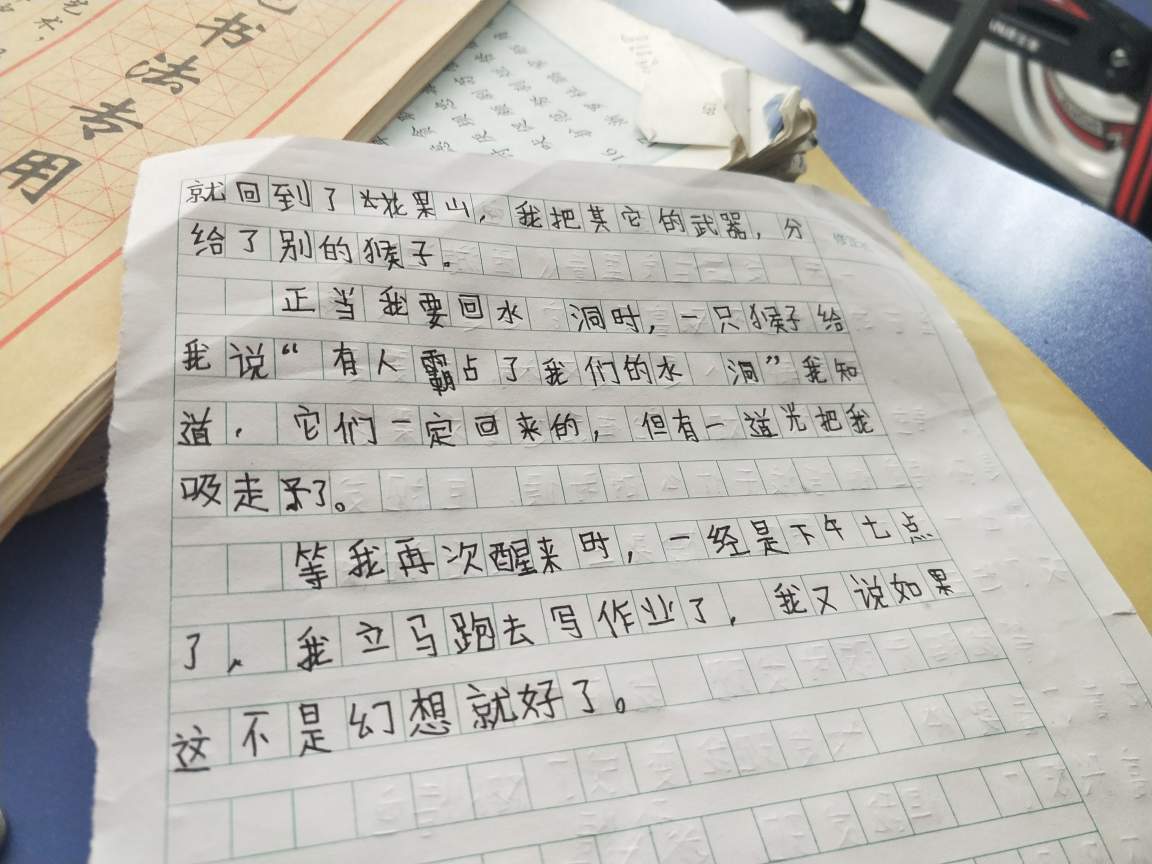 书法专用
就回到了花果山，我把其它的武器，分
给了别的猴子。
正当我要回水 洞时，一只猴子给
我说“有人霸占了我们的水 洞”我知
道，它们一定回来的，但有一道光把我
吸走了。
等我再次醒来时，一经是下午七点
了，我立马跑去写作业了，我又说如果
这不是幻想就好了。